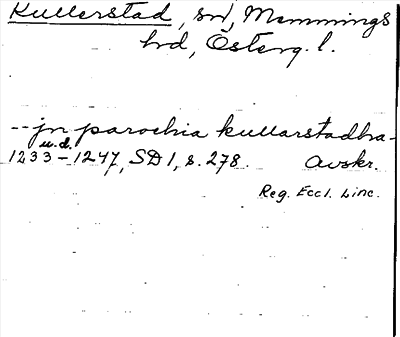 Kullerstad, sn, Memmings
hd, Österg. l.
-- jn parochia kullarstadha -
u.d.
1233-1247, SD 1, s. 278. Avskr.
Reg. Eccl. Linc.